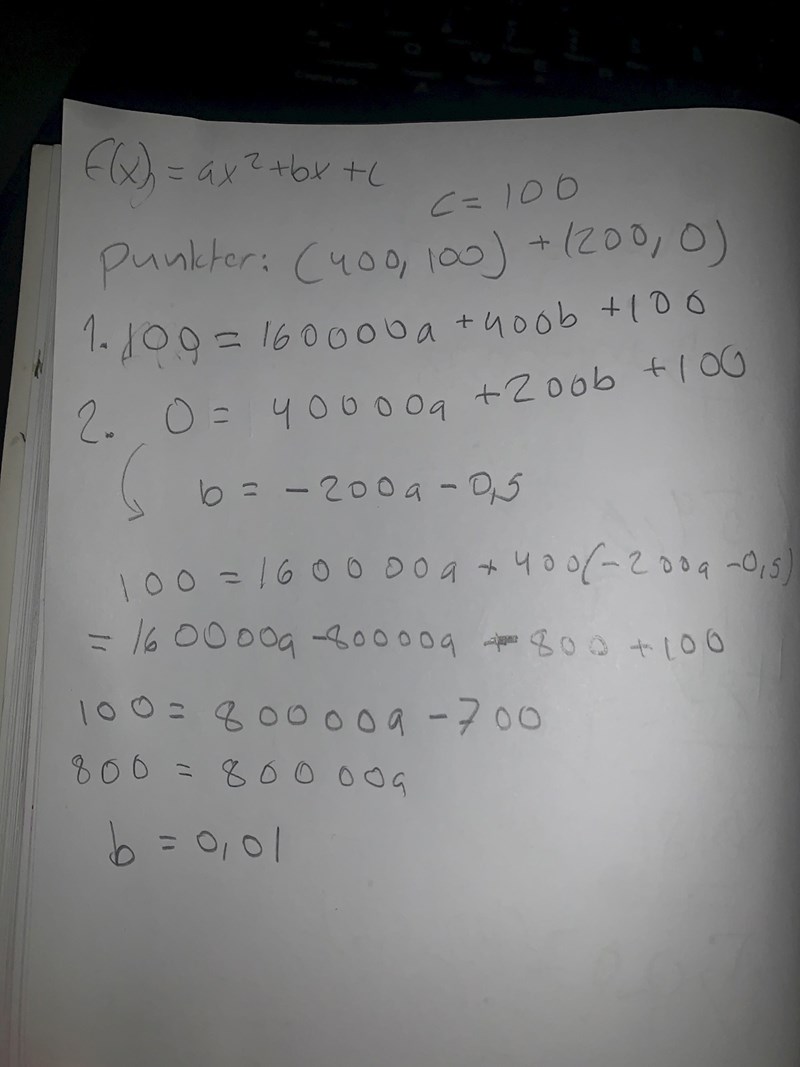 f(x) = ax² + bx + c
c = 100
punkter: (400, 100) + (200, 0)
1. 100 = 160000a + 400b + 100
2. 0 = 40000a + 200b + 100
b = -200a - 0,5
100 = 160000a + 400(-200a - 0,5)
= 160000a - 80000a - 800 + 100
100 = 80000a - 700
800 = 80000a
b = 0,01